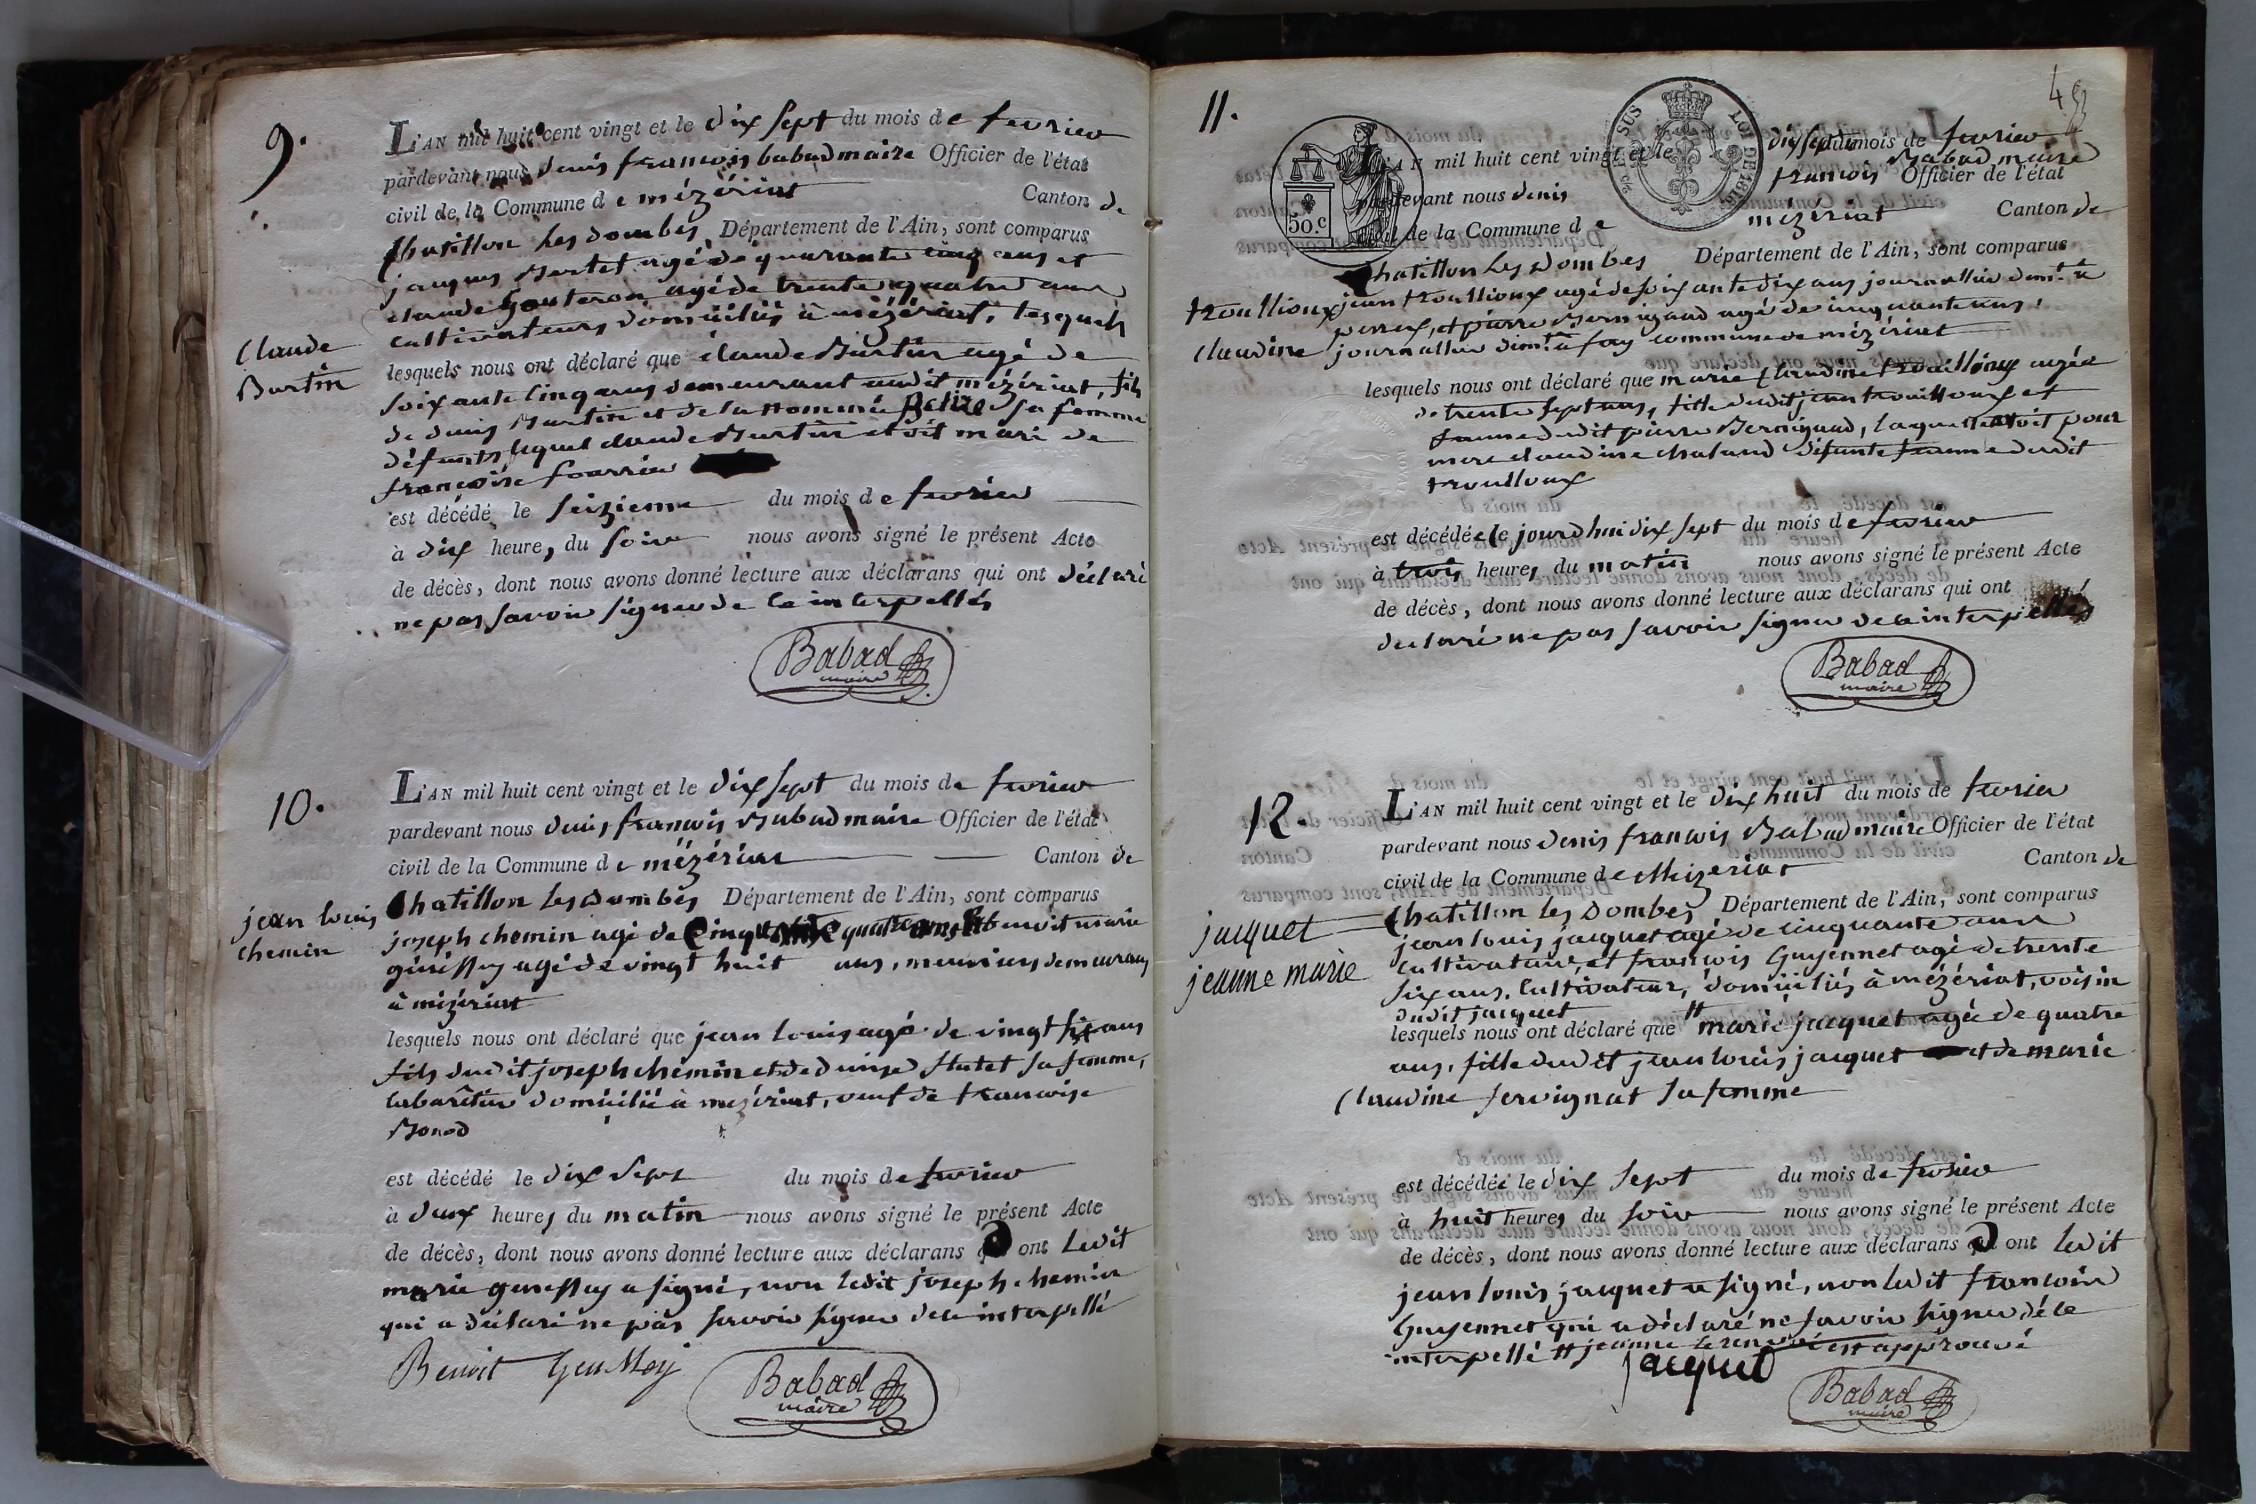 9.
L'AN mil huit cent vingt et le dix sept du mois de fevrier
pardevant nous denis francois babad maire Officier de l'état
civil de la Commune de mézériat Canton de
Chatillon les dombes Département de l'Ain, sont comparus
jacques agé de quarante cinq ans et
claude Gouteron agé de trente quatre ans
cultivateurs domiciliés à mézériat, lesquels
Claude
Burtin
lesquels nous ont déclaré que claude Burtin agé de
soixante cinq ans demeurant audit mézériat, fils
de denis Burtin et de la nommée sa femme
défunts, lequel claude Burtin étoit mari de
françoise fourrier
est décédé le seizieme du mois de fevrier
à dix heures, du soir nous avons signé le présent Acte
de décès, dont nous avons donné lecture aux déclarans qui ont déclaré
ne pas savoir signer de ce interpellés
Babad
maire
10.
L'AN mil huit cent vingt et le dix sept du mois de fevrier
pardevant nous denis francois Babad maire Officier de l'état
civil de la Commune de mézériat Canton de
Chatillon les Dombes Département de l'Ain, sont comparus
jean louis
chemin
joseph chemin agé de cinquante quatre ans et benoit marie
agé de vingt huit ans, meuniers demeurans
à mézériat
lesquels nous ont déclaré que jean louis agé de vingt six ans
fils dudit joseph chemin et de denise Hutet sa femme,
domicilié à mezériat, veuf de francoise
Monod
est décédé le dix sept du mois de fevrier
à deux heures du matin nous avons signé le présent Acte
de décès, dont nous avons donné lecture aux déclarans ont Ledit
marie a signé, non ledit joseph chemin
qui a déclaré ne pas savoir signer de ce interpellé
Benoit
Babad
maire
11.
4
50.c
SUS
LOI DE 1816
L'AN mil huit cent vingt et le dix sept du mois de fevrier
pardevant nous denis francois Babad maire Officier de l'état
civil de la Commune de mézériat Canton de
Chatillon les Dombes Département de l'Ain, sont comparus
troullioux
claudine
jean troullioux agé de soixante dix ans journallier domt. à
perrex, et pierre Bernigaud agé de cinquante ans,
journallier domt. à fay commune de mézériat
lesquels nous ont déclaré que marie Claudine troullioux agée
de trente sept ans, fille dudit jean troullioux et
femme dudit pierre Bernigaud, laquelle avoit pour
mere claudine chaland défunte femme dudit
troulloux
est décédée le jourdhui dix sept du mois de fevrier
à trois heures du matin nous avons signé le présent Acte
de décès, dont nous avons donné lecture aux déclarans qui ont
declaré ne pas savoir signer de ce interpellés
Babad
maire
12.
L'AN mil huit cent vingt et le dix huit du mois de fevrier
pardevant nous denis francois Babad maire Officier de l'état
civil de la Commune de Mezeriat Canton de
Chatillon les Dombes Département de l'Ain, sont comparus
jacquet
jeanne marie
jean louis jacquet agé de cinquante ans
cultivateur, et francois Guyennet agé de trente
six ans, cultivateur, domiciliés à mézériat, voisin
dudit jacquet
lesquels nous ont déclaré que # marie jacquet agée de quatre
ans, fille dudit jean louis jacquet et de marie
Claudine servignat sa femme
est décédée le dix sept du mois de fevrier
à huit heures du soir nous avons signé le présent Acte
de décès, dont nous avons donné lecture aux déclarans ont Ledit
jean louis jacquet a signé, non ledit francois
Guyennet qui a déclaré ne savoir signer de ce
interpellé # jeanne le renvoi est approuvé
jacquet
Babad
maire